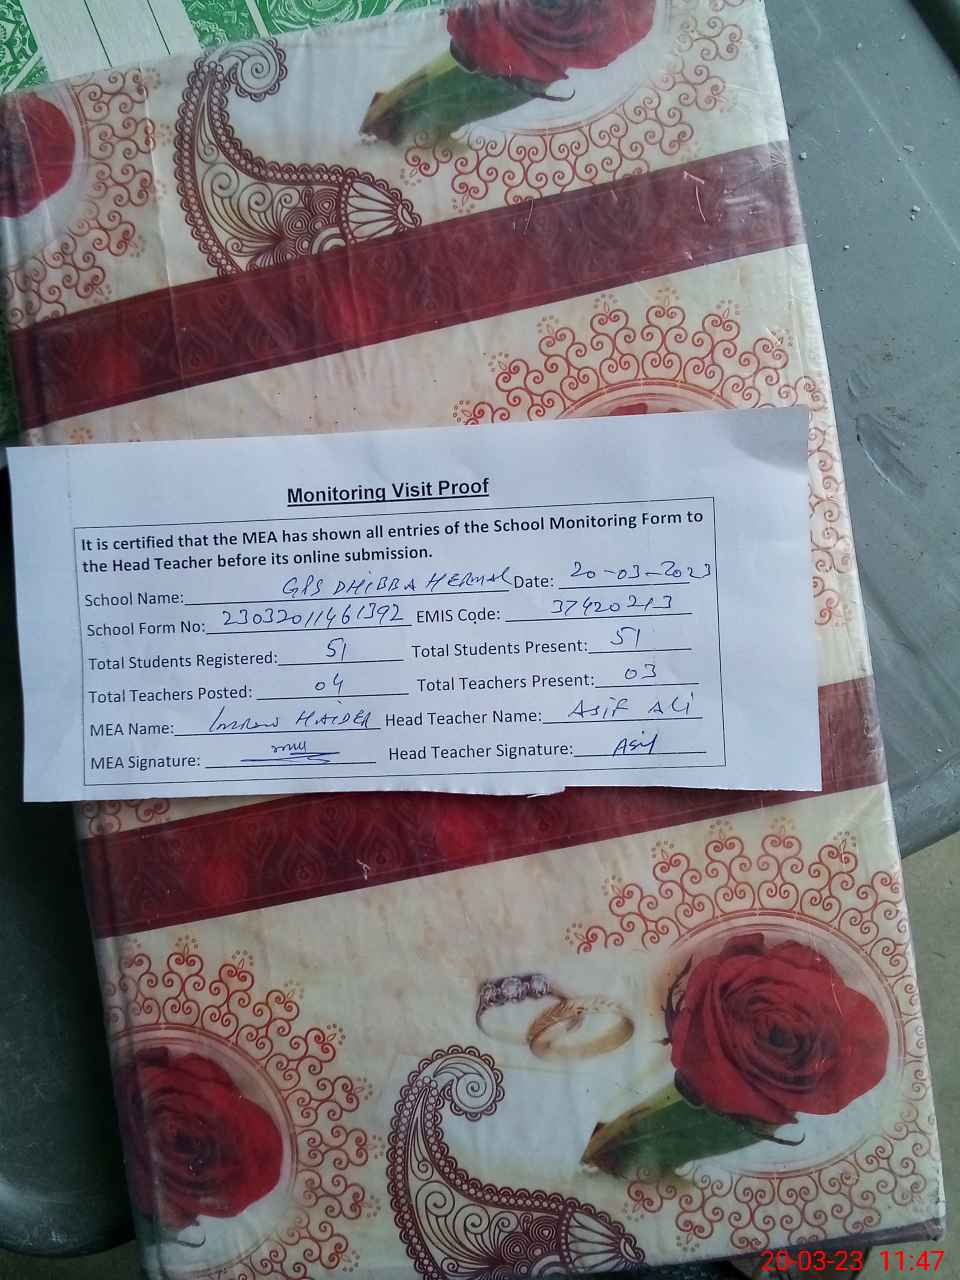 Monitoring Visit Proof
It is certified that the MEA has shown all entries of the School Monitoring Form to
the Head Teacher before its online submission.
School Name: GPS DHIBBA HERNAL Date: 20-03-2023
School Form No: 23032011461392 EMIS Code: 37420213
Total Students Registered: 51 Total Students Present: 51
Total Teachers Posted: 04 Total Teachers Present: 03
MEA Name: HAIDER Head Teacher Name: Asif Ali
MEA Signature: Head Teacher Signature: Asif
20-03-23 11:47